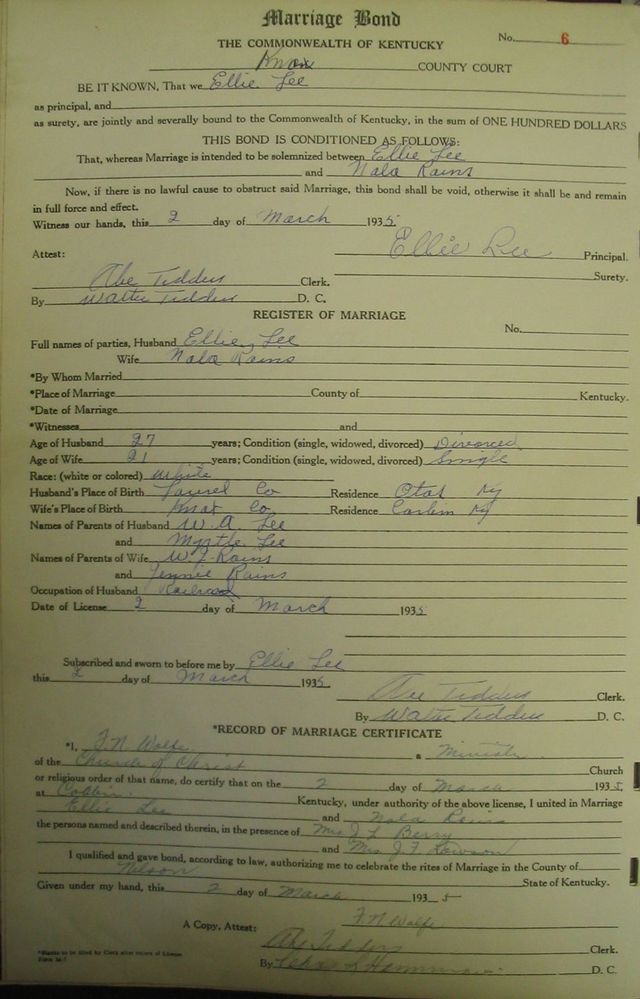 Marriage Bond
No. 6
THE COMMONWEALTH OF KENTUCKY
Knox COUNTY COURT
BE IT KNOWN, That we Ellie Lee
as principal, and
as surety, are jointly and severally bound to the Commonwealth of Kentucky, in the sum of ONE HUNDRED DOLLARS
THIS BOND IS CONDITIONED AS FOLLOWS:
That, whereas Marriage is intended to be solemnized between Ellie Lee
and Nala Rains
Now, if there is no lawful cause to obstruct said Marriage, this bond shall be void, otherwise it shall be and remain
in full force and effect.
Witness our hands, this 2 day of March 1935
Ellie Lee Principal.
Attest:
Surety.
Abe Tedders Clerk.
By Walter Tedders D. C.
REGISTER OF MARRIAGE
No.
Full names of parties, Husband Ellie Lee
Wife Nala Rains
*By Whom Married
*Place of Marriage County of Kentucky.
*Date of Marriage
*Witnesses and
Age of Husband 27 years; Condition (single, widowed, divorced) Divorced
Age of Wife 21 years; Condition (single, widowed, divorced) Single
Race: (white or colored) White
Husband's Place of Birth Laurel Co Residence Ky
Wife's Place of Birth Knox Co. Residence Ky
Names of Parents of Husband W. A. Lee
and Myrtle Lee
Names of Parents of Wife W. J. Rains
and Jennie Rains
Occupation of Husband Railroad
Date of License 2 day of March 1935
Subscribed and sworn to before me by Ellie Lee
this 2 day of March 1935
Abe Tedders Clerk.
By Walter Tedders D. C.
*RECORD OF MARRIAGE CERTIFICATE
*I, F. N. Wolfe a Minister
of the Church of Christ Church
or religious order of that name, do certify that on the 2 day of March 1935
at Corbin Kentucky, under authority of the above license, I united in Marriage
Ellie Lee and Nala Rains
the persons named and described therein, in the presence of Mrs J. L. Berry
and Mrs J. F. Lawson
I qualified and gave bond, according to law, authorizing me to celebrate the rites of Marriage in the County of
Nelson State of Kentucky.
Given under my hand, this 2 day of March 1935
F. N. Wolfe
A Copy, Attest:
Abe Tedders Clerk.
*Blanks to be filled by Clerk after return of License
By D. C.